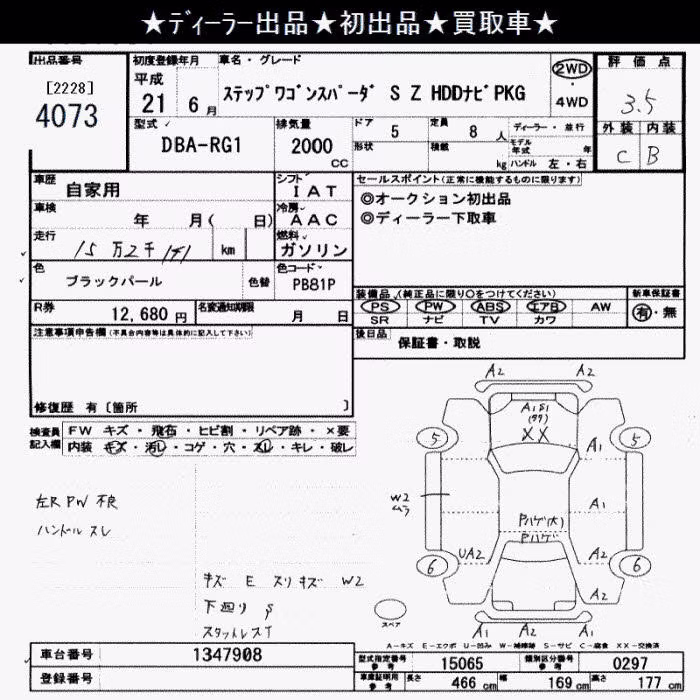 ★ディーラー出品★初出品★買取車★
出品番号
[2228]
4073
初度登録年月
平成
21 6月
車名・グレード
ステップワゴンスパーダ S Z HDDナビPKG
2WD
・
4WD
評価点
3.5
外装 内装
C B
型式
DBA-RG1
排気量
2000
CC
ドア
5
定員
8 人
ディーラー・並行
形状
積載
kg
モデル年式 年
ハンドル 左・右
車歴
自家用
シフト
IAT
車検
年 月( 日)
冷房
AAC
走行
15万2千 km
燃料
ガソリン
色
ブラックパール
色替
色コード
PB81P
R券
12,680 円
名変通知期限
月 日
セールスポイント(正常に機能するものに限ります)
◎オークション初出品
◎ディーラー下取車
装備品 (純正品に限り○をつけてください)
新車保証書
PS PW ABS エアB AW
有・無
SR ナビ TV カワ
後日品
保証書・取説
注意事項申告欄(不具合内容等は具体的に記入して下さい)
修復歴 有〔箇所 〕
検査員記入欄
FW キズ・飛石・ヒビ割・リペア跡・×要
内装 キズ・汚レ・コゲ・穴・スレ・キレ・破レ
左R PW 不良
ハンドル スレ
キズ E スリキズ W2
下廻り S
スタットレスT
A2 A2
A1S1
XX
5 5
A1
W2
ムラ
A1
Pハゲ(大)
Pハゲ
UA2 A2
6 6
A2
スペア
A1 A1 A2
A-キズ E-エクボ U-凹み W-補修跡 S-サビ C-腐食 XX-交換済
車台番号
1347908
登録番号
型式指定番号
参考
15065
類別区分番号
参考
0297
車庫証明用
参考
長さ 466 cm
幅 169 cm
高さ 177 cm